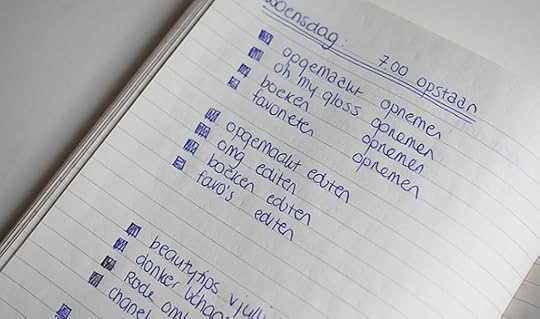 woensdag: 7.00 opstaan
opgemaakt opnemen
oh my gloss opnemen
boeken opnemen
favorieten opnemen
opgemaakt editen
omg editen
boeken editen
favo's editen
beautytips v jullie
donker
Rode
chanel